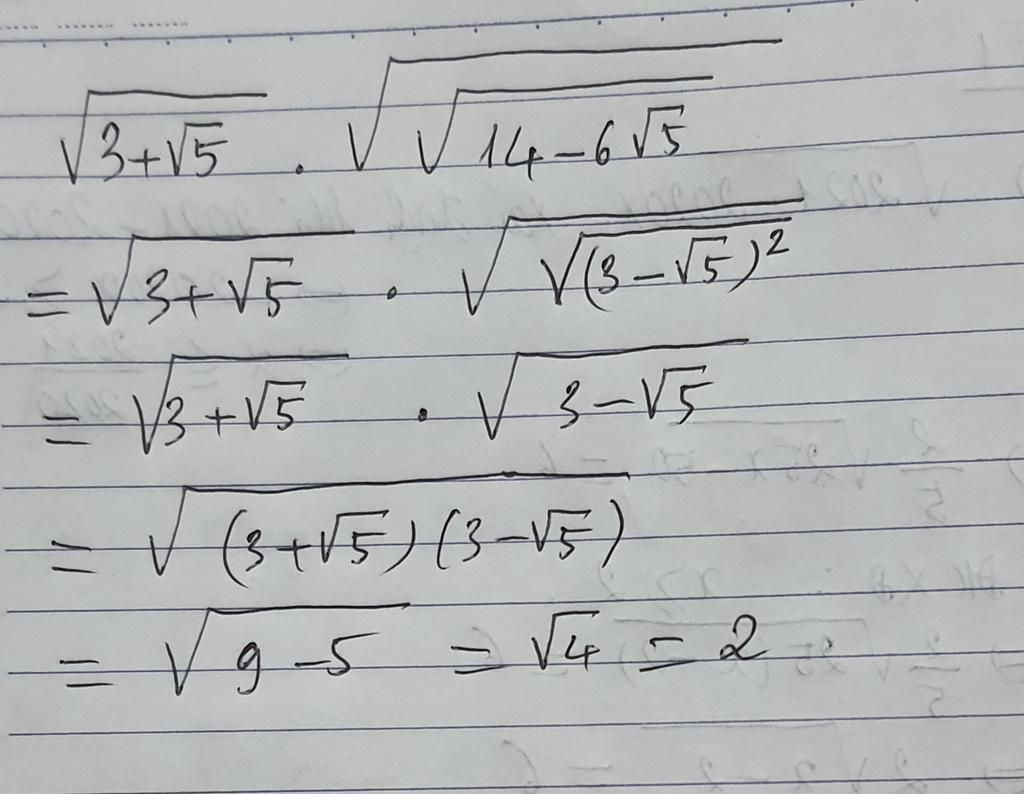 √(3+√5) . √(√(14-6√5))
= √(3+√5) . √(√((3-√5)²))
= √(3+√5) . √(3-√5)
= √((3+√5)(3-√5))
= √(9-5) = √4 = 2